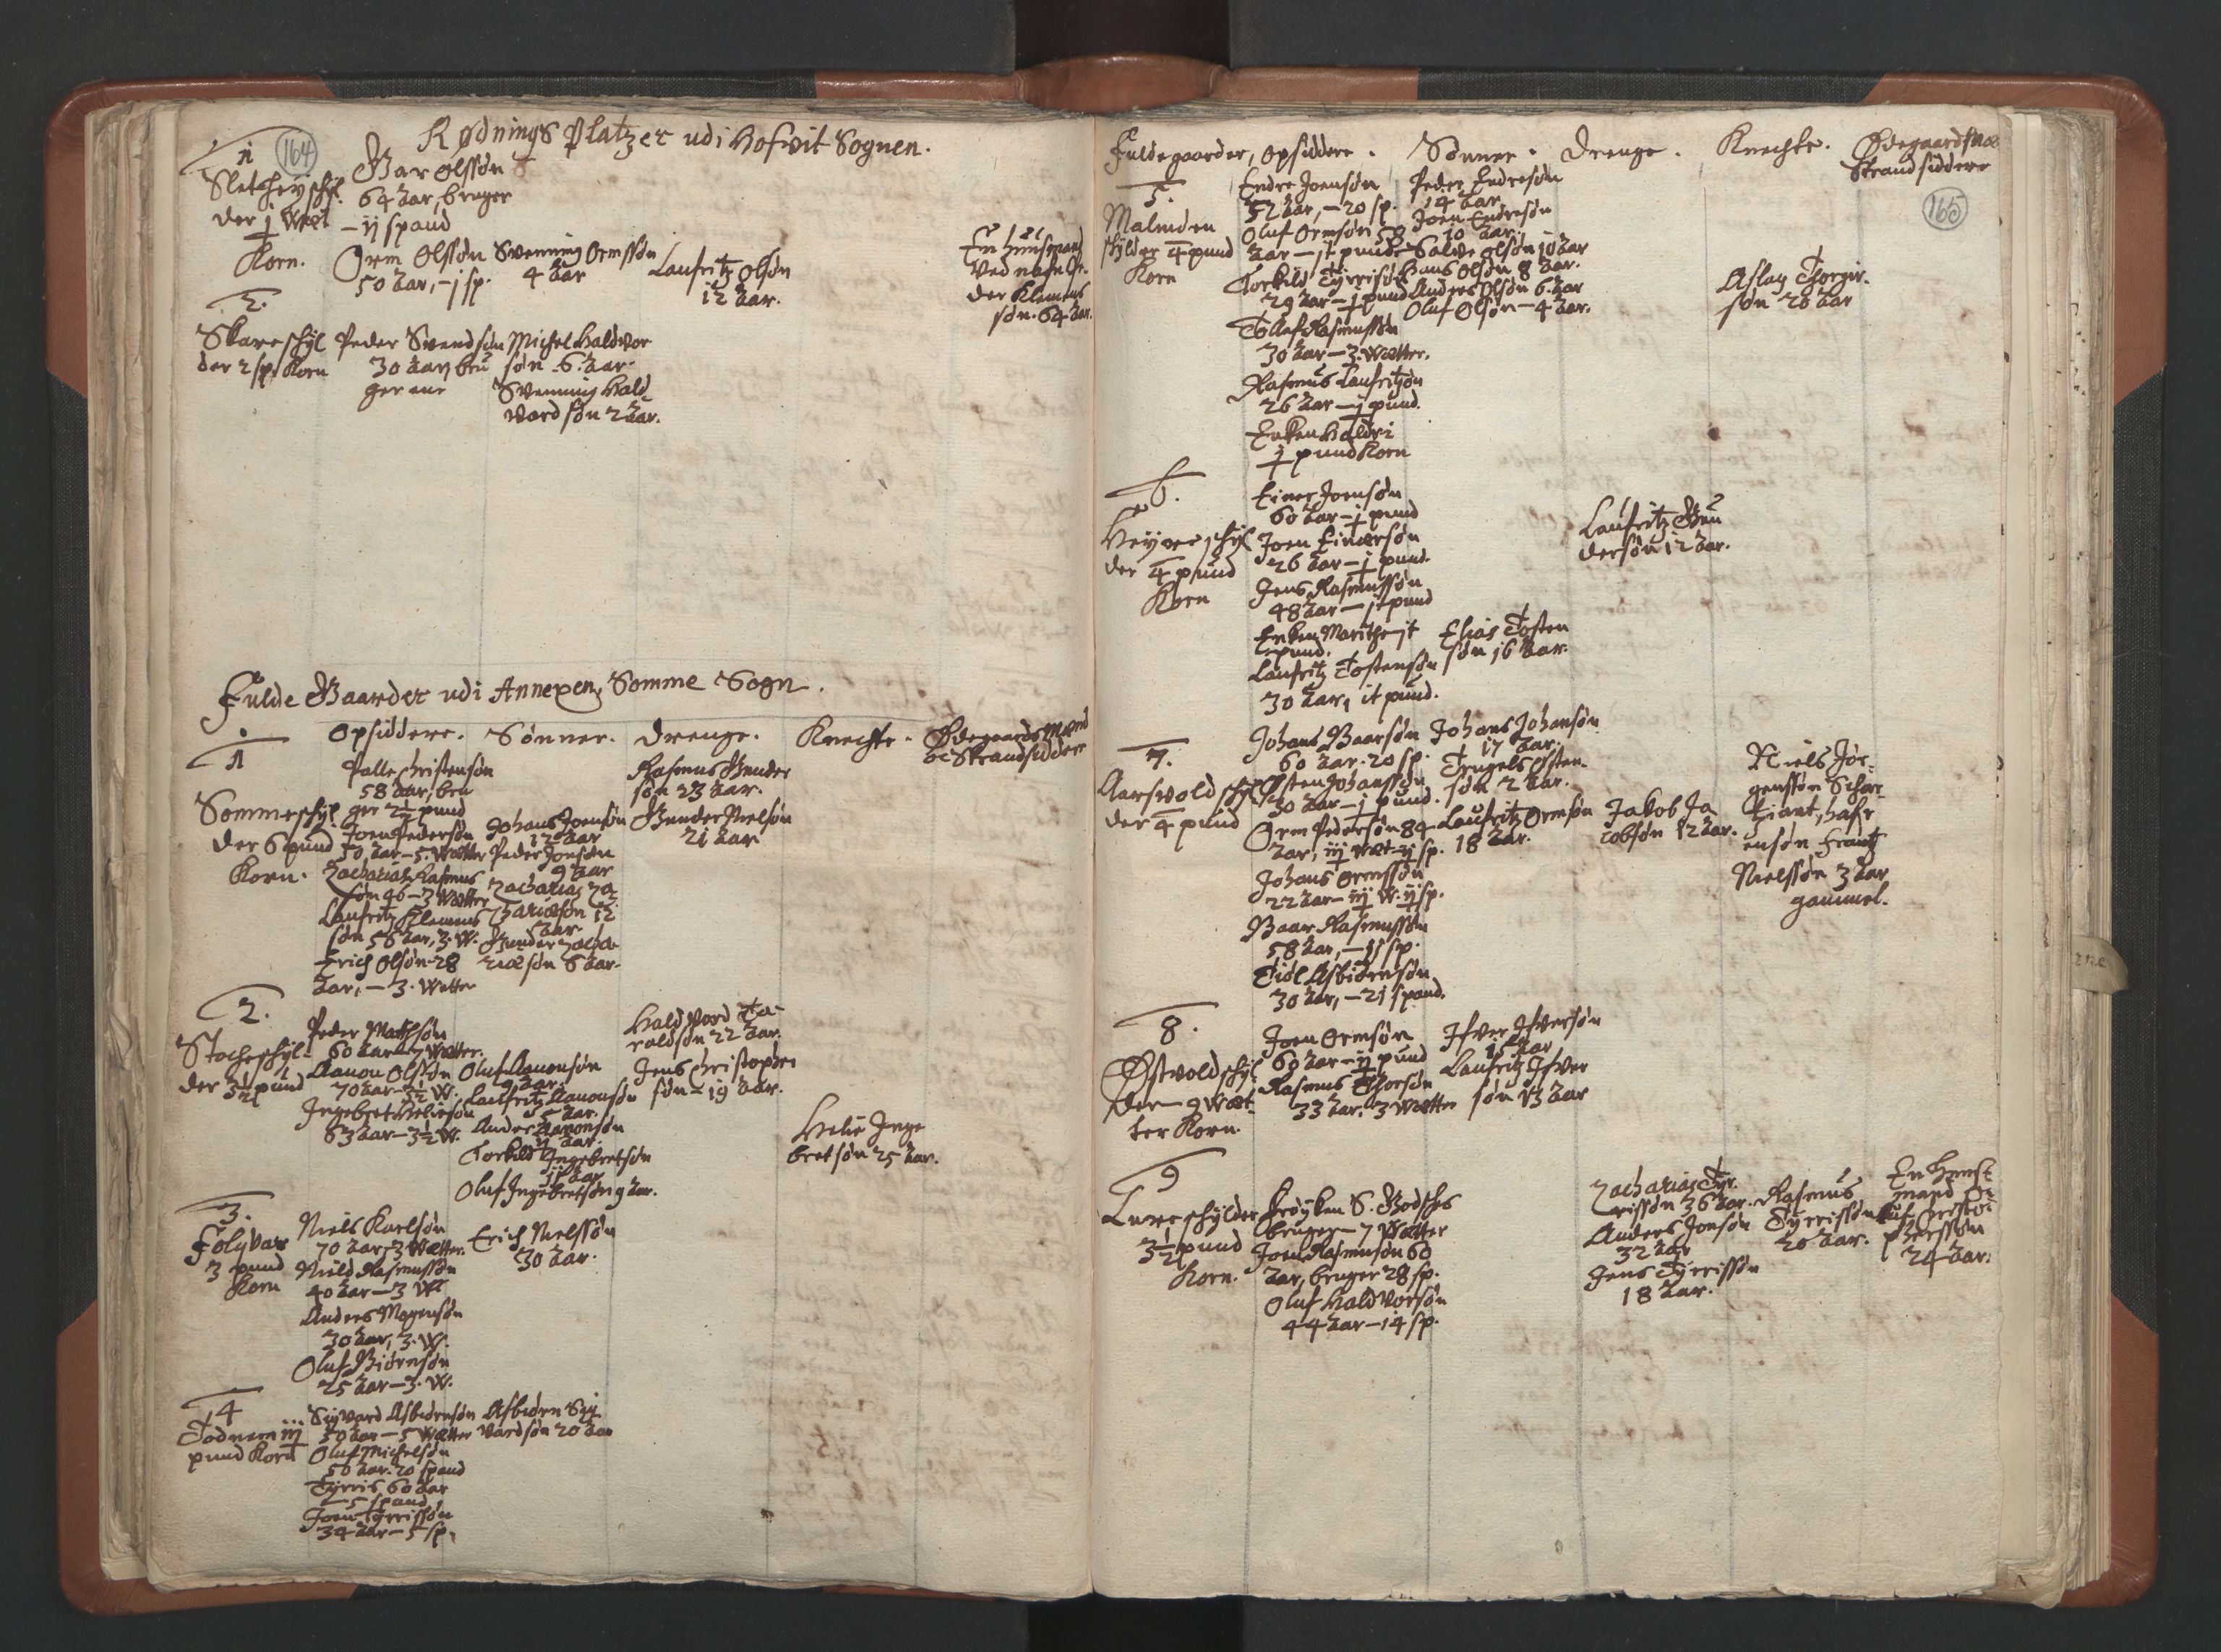 164
Rødnings Platzer udi Hofvit Sognen.
1
Sletheÿ schÿl
der j Wæt
Korn.
Baar Olssøn
64 Aar, bruger
– ij spand
Orm Olssøn
50 Aar, – j sp.
Svenning Ormssøn
4 Aar
Laufritz Olsøn
12 Aar.
En huusmand
Ved nafn
der Klemend
søn. 64 Aar.
2.
Skare schÿl
der 2 sp. Korn
Peder Svendsøn
30 Aar, bru
ger ene
Michel Haldvor
søn 6. Aar.
Svenning Hald
vordsøn 2 Aar.
Fulde Gaarder udi Annexen, Somme Sogn.
Opsiddere. Sønner. Drenge. Knechte. Ødegaards Mænd
oc Strandsiddere
1
Somme schÿl
der 6 pund
Korn.
Palle Christensøn
58 Aar, bru
ger 2½ pund
Joen Pedersøn
50 Aar – 5. Wætter
Zacharias Rasmus
søn 46 – 3 Wætter
Laufritz Klemend
søn 56 Aar, 3. W.
Erich Olsøn 28
Aar, – 3. Wætter
Johans Joensøn
12 Aar
Peder Jonsøn
9 Aar
Zacharias Za
chariæsøn 12
Aar.
Gunder Zacha
riæsøn 6 Aar.
Rasmus Gunder
søn 23 Aar.
Gunder Nielsøn
21 Aar
2.
Stoche schÿl
der 3½ pund
Peder Mathsøn
60 Aar – 7 Wætter.
Aanon Olssøn
70 Aar – 3½ W.
Ingebret Heliesøn
63 Aar – 3½ W.
Oluf Aanonsøn
9 Aar.
Laufritz Aanonsøn
5 Aar.
Anders Aanonsøn
Torkild Ingebretsøn
Oluf Ingebretsøn 9 Aar.
Haldvord Ta
raldsøn 22 Aar.
Jens Christopher
søn – 19 Aar.
Helie Inge
bretsøn 25 Aar.
3.
Folivar
3 pund
Korn
Niels Karlsøn
70 Aar, 3 Wætter.
Niels Rasmussøn
40 Aar – 3 W
Anders Mogensøn
30 Aar, 3. W.
Oluf Biørnsøn
25 Aar – 3. W.
Erich Nielssøn
30 Aar.
4
Todnem iij
pund Korn
Sÿvard Asbiørnsøn
50 Aar – 5 Wætter
Oluf Michelsøn
50 Aar. 20 spand
Tÿrris 60 Aar
– 5 spand
Joen Tÿrrissøn
34 Aar – 5 sp.
Asbiørn Sÿ
vardsøn 20 Aar
Fuldegaarder, Opsiddere. Sønner. Drenge. Knechte. Ødegaardsmæ
Strandsiddere
165
5.
Malmden
schÿlder 4 pund
Korn
Endre Joensøn
52 Aar, – 20 sp.
Oluf Ormsøn 50
Aar – jt pund
Torkild Tÿrrisøn
29 Aar – j pund
Tollaf Rasmussøn
30 Aar – 3. Wætter.
Rasmus Laufritzøn
26 Aar – j pund.
Enken
j pund Korn
Peder Endresøn
14 Aar
Joen Endresøn
10 Aar.
Salve Olsøn 10 Aar
Hans Olsøn 8 Aar.
Anders Olsøn 6. Aar
Oluf Olsøn – 4 Aar.
Aslag Thorgir
søn 26 Aar
6.
Heÿre schÿl
der 4 pund
Korn
Einer Joensøn
60 Aar – j pund
Joen Einersøn
26 Aar – j pund.
Jens Rasmussøn
48 Aar – jt pund
Enken Marithe – jt
pund.
Laufritz Tostensøn
30 Aar, it pund.
Elias Tosten
søn 16 Aar.
Laufritz Gun
dersøn 12 Aar.
7.
Aarsvold schÿl
der 4 pund
Johans Baarsøn
60 Aar. 20 sp.
Østen Johanssøn
30 Aar – j pund.
Orm Pedersøn 84
Aar, iij wæt ij sp.
Johans Ormssøn
22 Aar – iij W. ij sp.
Baar Rasmussøn
58 Aar, – 15 sp.
Tiøl Asbiørnsøn
30 Aar, – 21 spand.
Johans Johansøn
17 Aar.
Trugels Østen
søn 2 Aar.
Laufritz Ormsøn
18 Aar.
Jakob Ja
cobsøn 12 Aar.
Niels Jør
genssøn Schar
ziant, hafr
ensøn Frantz
Nielssøn 3 Aar
gammel.
8.
Østvold schÿl
der – 9 Wæt
ter Korn.
Joen Ormsøn
60 Aar – ij pund
Rasmus Thorsøn
33 Aar. 3 Wætter
Ifver Ifversøn
15 Aar
Laufritz Ifver
søn 13 Aar
9
Lure schÿlder
3½ pund
Korn.
Frøÿken S. Godsches
bruger – 7 Wætter
Joen Rasmusøn 60
Aar, bruger 28 sp.
Oluf Haldvorsøn
44 Aar – 14 sp.
Zacharias Tÿr
rissøn 36 Aar.
Anders Jonsøn
32 Aar
Jens Tÿrrissøn
18 Aar.
Rasmus
Tÿrrissøn
20 Aar.
En Huus
mand
Christo
phersøn
24 Aar.